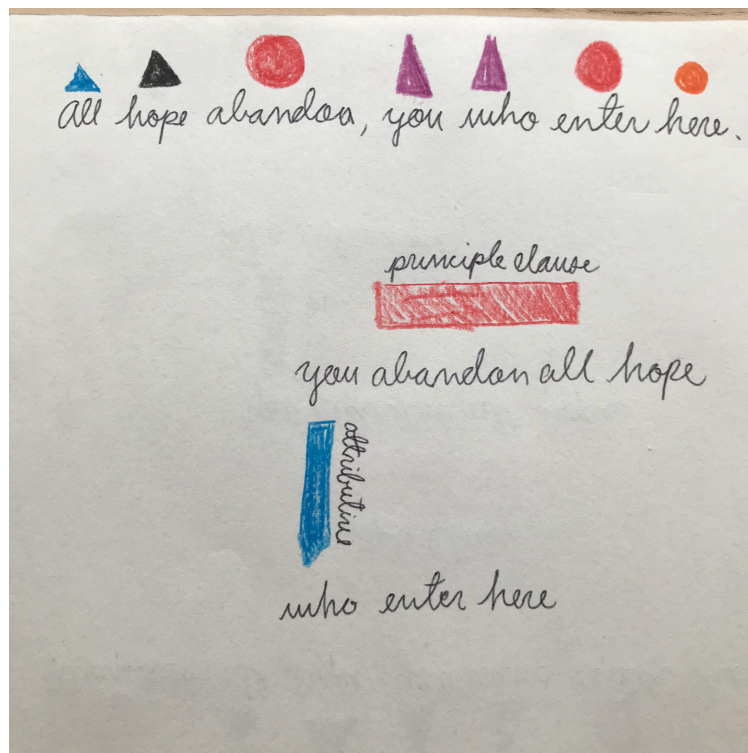 all hope abandon, you who enter here.
principle clause
you abandon all hope
attributive
who enter here